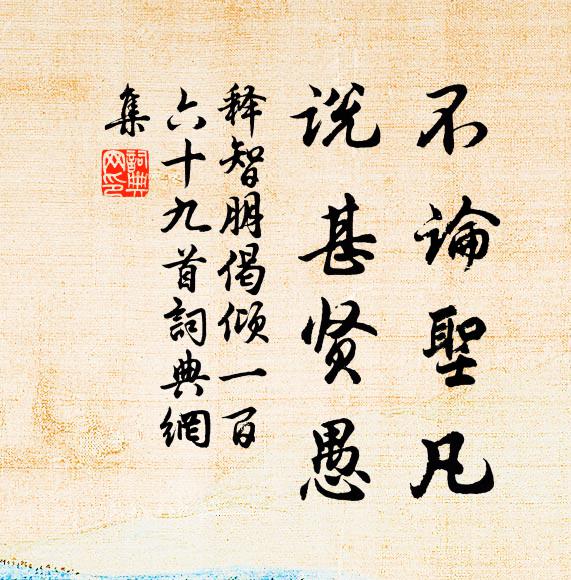 不論聖凡
説甚贤愚
释智朋偈倾一百
六十九首詞典網
集
詞典
网印